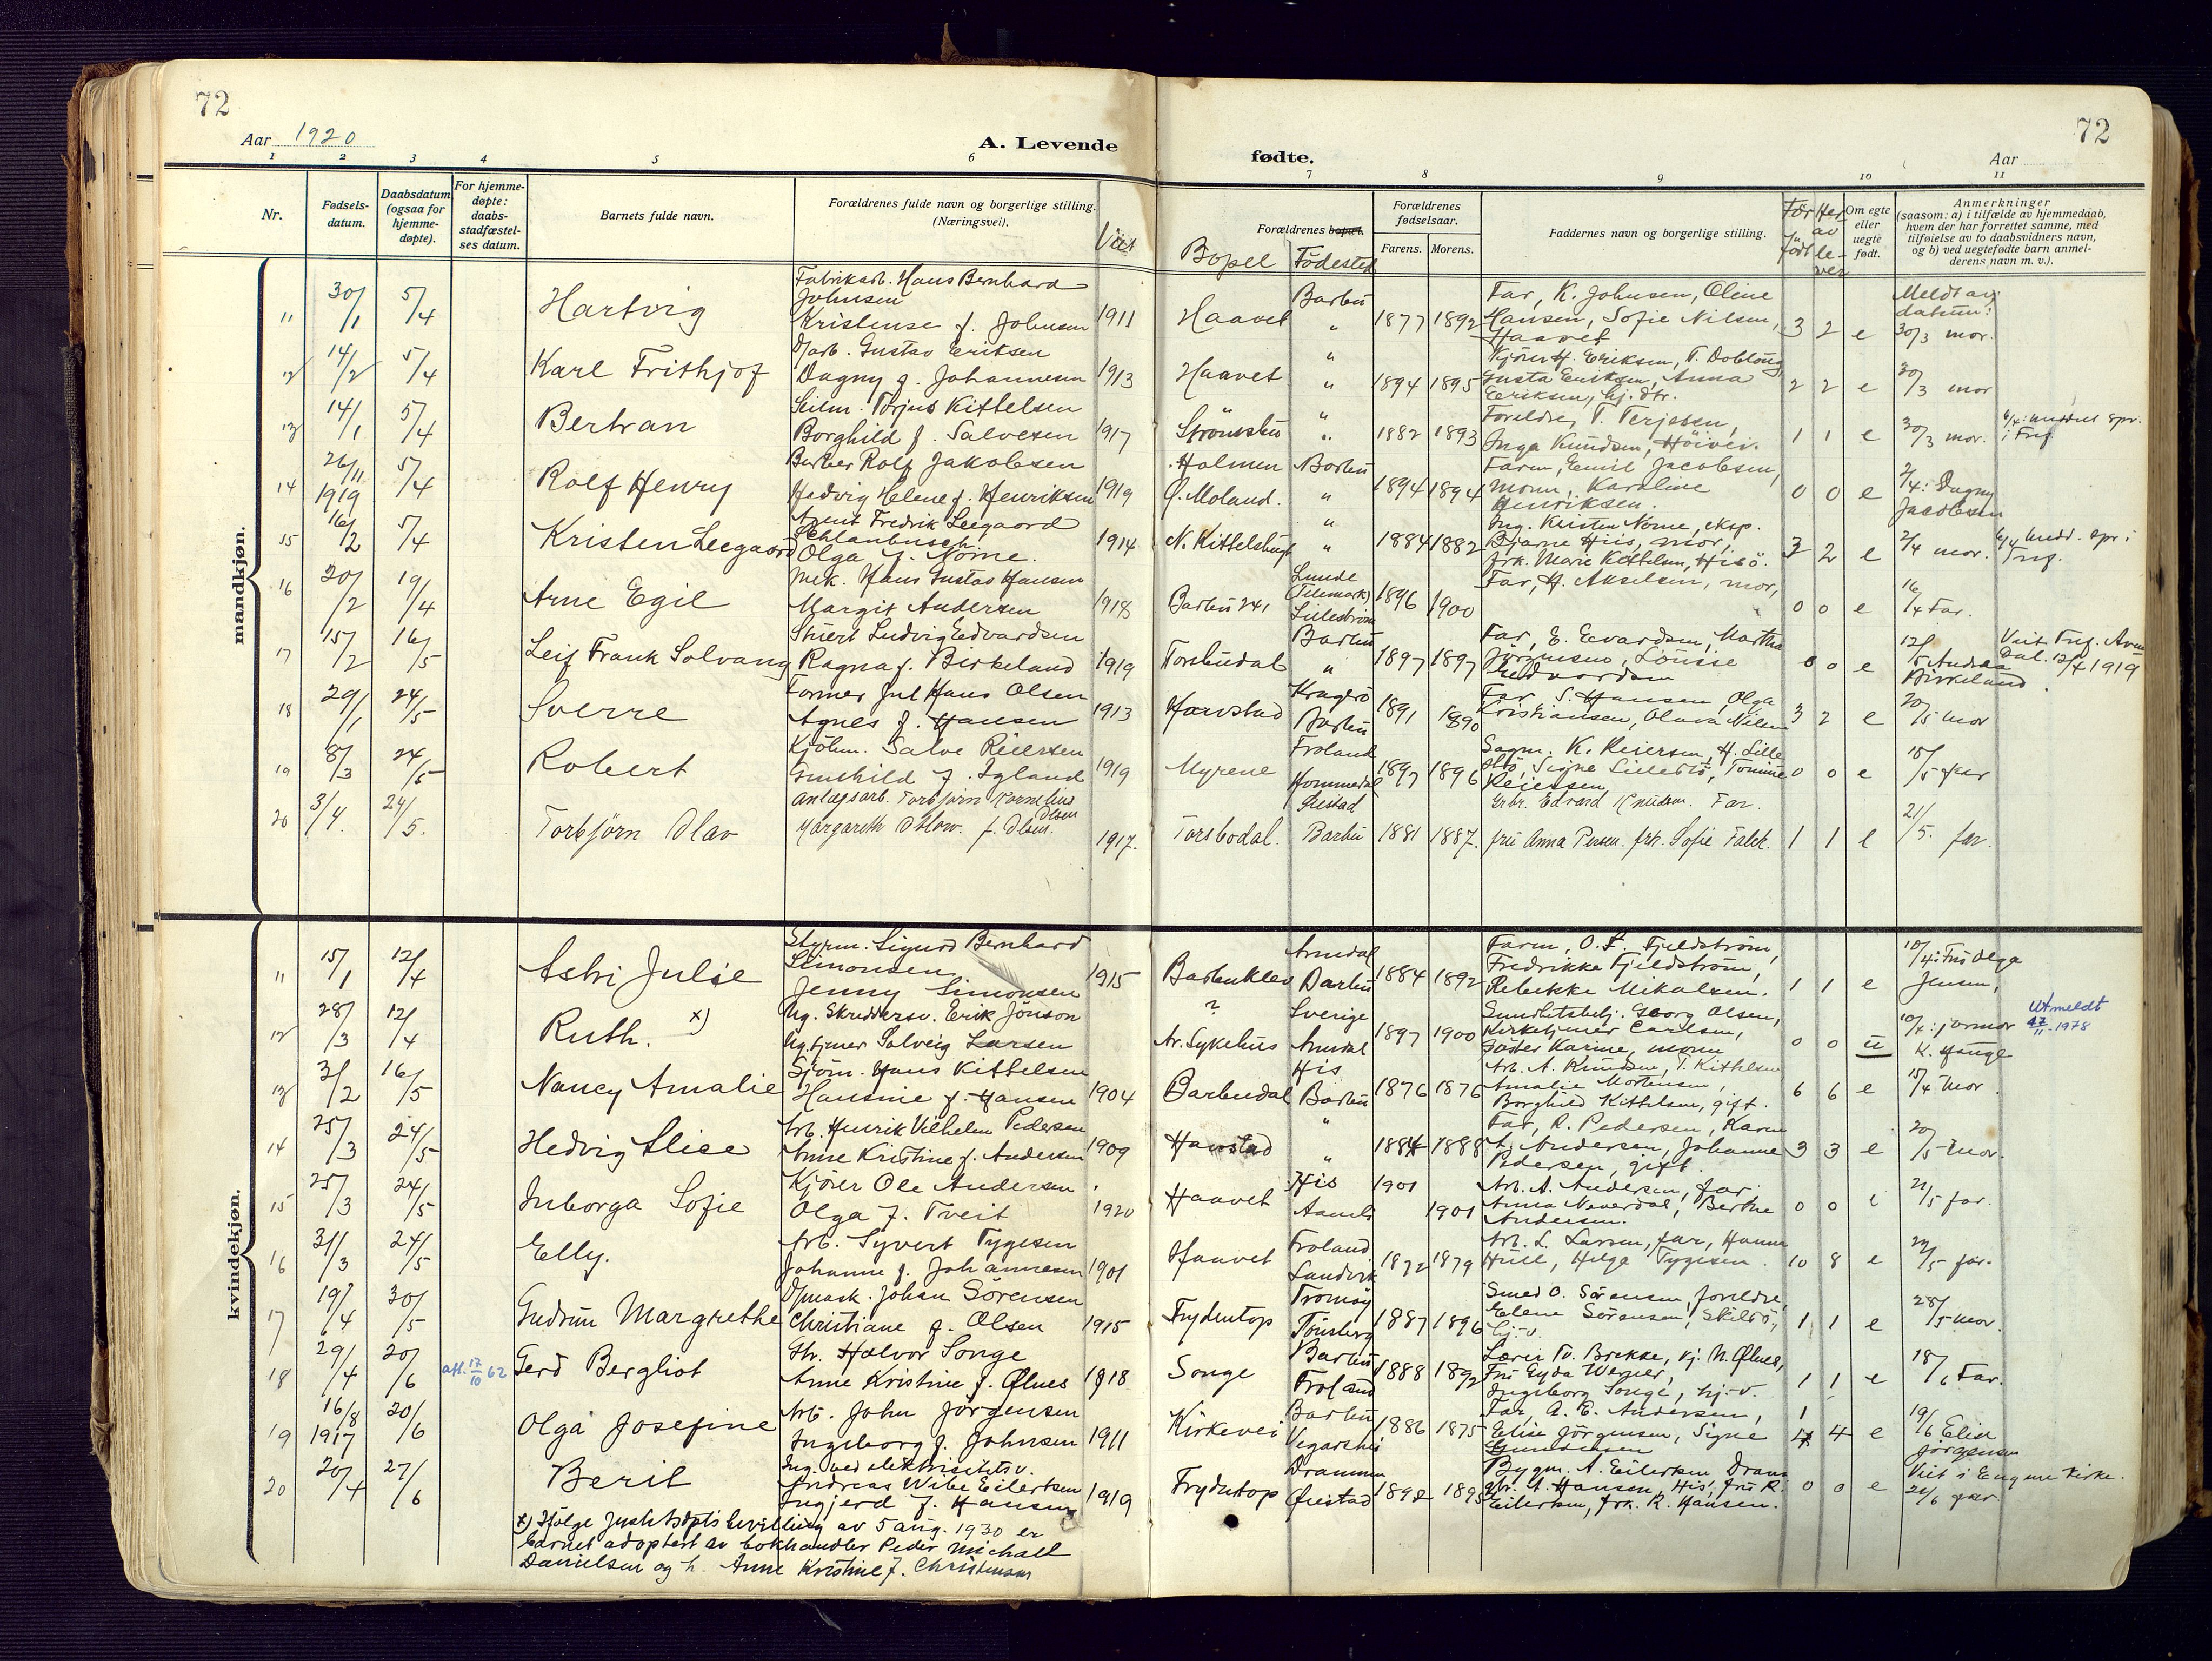 72
72
Aar 1920
A. Levende
fødte.
Aar
1 2 3 4 5 6 7 8 9 10 11
Nr.
Fødsels-
datum.
Daabsdatum
(ogsaa for
hjemme-
døpte).
For hjemme-
døpte:
daabs-
stadfæstel-
ses datum.
Barnets fulde navn.
Forældrenes fulde navn og borgerlige stilling.
(Næringsvei).
Viet
Forældrenes bopæl.
Bopel Födested
Forældrenes
fødselsaar.
Farens. Morens.
Faddernes navn og borgerlige stilling.
Før född
Her av le-
ver
Om egte
eller
uegte
født.
Anmerkninger
(saasom: a) i tilfælde av hjemmedaab,
hvem der har forrettet samme, med
tilføielse av to daabsvidners navn,
og b) ved uegtefødte barn anmel-
derens navn m. v.).
mandkjøn.
11 30/1 5/4 Hartvig
Fabriksb. Hans Bernhard
Johnsen
Kristense f. Johnsen 1911
Haavet Barbu " 1877 1892
Far, K. Johnsen, Oline
Hansen, Sofie Nilsen,
Haavet
3 2 e
Meldt av,
datum:
30/3 mor.
12 14/2 5/4 Karl Frithjof
Gustav Eriksen
Dagny f. Johannesen 1913
Haavet " " 1894 1895
Eriksen, T. Doblong
Gusta Eriksen, Anna
Eriksen, hj. dtr.
2 2 e 30/3 mor
13 14/1 5/4 Bertran
Seilm. Torjus Kittelsen
Borghild f. Salvesen 1917
Strömsbu " " 1882 1893
Foreldre, T. Terjesen,
Inga Knudsen, Höivei.
1 1 e 30/3 mor.
14 26/11 1919 5/4 Rolf Henry
Barber Rolf Jakobsen
Hedvig Helene f. Henriksen 1919
Holmen Barbu
Ö. Moland. " 1894 1894
Faren, Emil Jacobsen,
moren, Karoline
Henriksen.
0 0 e 2/4: Dagny
Jacobsen
15 16/2 5/4 Kristen Leegaard
Agent Fredrik Leegaard
Schlanbusch
Olga f. Nome. 1914
N. Kittelsbugt " " 1884 1882
Ing. Kristen Nome, eksp.
Bjarne Hiis, mor,
frk. Marie Kittelsen, Hisö.
3 2 e 2/4 mor.
16 20/2 19/4 Arne Egil
Mek. Hans Gustav Hansen
Margit Andersen 1918
Barbu 241 Lunde
(Telemark)
Lilleström 1896 1900
Far, H. Akselsen, mor,
0 0 e 16/4 Far.
17 15/2 16/5 Leif Frank Solvang
Stuert Ludvig Edvardsen
Ragna f. Birkeland 1919
Torsbudal Barbu " 1897 1897
Far, E. Evardsen, Martha
Jörgensen, Louise
Edvardsen
0 0 e 12/5 Andrea
Birkeland
18 29/1 24/5 Sverre
Former Jul Hans Olsen
Agnes f. Hansen 1913
Harstad Kragerö
Barbu 1891 1890
Far, S. Hansen, Olga
Kristiansen, Olava Nilsen
3 2 e 20/5 mor
19 8/3 24/5 Robert
Kjöbm. Salve Reiersen
Gunhild f. Igland 1919
Myrene Froland
Hommedal 1897 1896
Sagm. K. Reiersen, H. Lille
Signe Lilleslö, Tomine
Reiersen
0 0 e 18/5 far
20 3/4. 24/5. Torbjörn Olav
Anlægsarb. Torbjörn Kornelius
Olsen
Margareth f. Olsen. 1917.
Torsbodal. Öiestad
Barbu 1881 1887.
Grbr. Edvard Knudsen. Far.
fru Anna Persen. frk. Sofie Falck.
1 1 e 21/5. far.
kvindekjøn.
11 15/1 12/4 Astri Julie
Styrm. Sigurd Bernhard
Simonsen
Jenny Simonsen 1915
Barbuklev Arendal
Barbu 1884 1892
Faren, O. F. Fjeldström,
Fredrikke Fjeldström,
Rebekke Mikalsen.
1 1 e 10/4: Fru Olga
Jensen,
12 28/3 12/4 Ruth. x)
Ug. Skreddersv. Erik Jönson
Ug. tjener Solveig Larsen
?
Ar. Sykehus Sverige
Arendal 1897 1900
Sundhetsbetj. Georg Olsen,
Kirketjener Carlsen,
Söster Karine, moren
0 0 u 10/4: jormor
K. Hauge
Utmeldt
17/11-1978
13 3/2 16/5 Nancy Amalie
Sjöm. Hans Kittelsen
Hansine f. Hansen 1904
Barbudal His
Barbu 1876 1876
Arb. A. Knudsen, T. Kittelsen
Amalie Mortensen,
Borghild Kittelsen, gift.
6 6 e 15/4 mor
14 25/3 24/5 Hedvig Alise
Arb. Henrik Vilhelm Pedersen
Anne Kristine f. Andersen 1909
Harstad " " 1884 1888
Far, R. Pedersen, Karen
Andersen, Johanne
Pedersen, gift.
3 3 e 20/5 mor.
15 25/3 24/5 Inborga Sofie
Kjörer Ole Andersen
Olga f. Tveit 1920
Haavet His
Aamli 1901 1901
Arb. A. Andersen, far,
Anna Neverdal, Berthe
Andersen.
0 0 e 21/5 far.
16 31/3 24/5 Elly.
Arb. Syvert Tygesen
Johanne f. Johannesen 1901
Haavet Froland
Landvik 1872 1879
Arb. L. Larsen, far, Hanna
Hull, Helga Tygesen.
10 8 e 22/5 far.
17 19/4 30/5 Gudrun Margrethe
D/pmask. Johan Sörensen
Christiane f. Olsen 1915
Frydentop Tromöy
Tönsberg 1887 1896
Smed O. Sörensen, foreldre,
Elene Sörensen, Skilsö,
hj-v.
1 1 e 28/5 mor.
18 29/4 20/6 att. 17/10 62 Gerd Bergliot
Str. Halvor Songe
Anne Kristine f. Ølnes 1918
Songe Barbu
Froland 1888 1892
Lærer Tr. Brekke, kj. N. Ølnes,
Fru Gyda Werner,
Ingeborg Songe, hj.-v.
1 1 e 18/6 Far.
19 16/8 1917 20/6 Olga Josefine
Arb. John Jörgensen
Ingeborg f. Johnsen 1911
Kirkevei Barbu
Vegarshei 1886 1875
Far, A. E. Andersen,
Elise Jörgensen, Signe
Gundersen
4 e 19/6 Elise
Jörgensen
20 20/4 27/6 Berit
Ing. ved elektrisitetsv.
Andreas Wibe Eilertsen
Ingjerd f. Hansen 1919
Frydentop Drammen
Øiestad 1892 1895
Bygm. A. Eilertsen, Dram
A. Hansen, His, fru R.
Eilertsen, frk. R. Hansen.
0 0 e Viet i Engene kirke.
21/6 far.
x) Ifölge Justitsdpts bevilling av 5 aug. 1930 er
barnet adoptert av bokhandler Peder Michael
Danielsen og h. Anne Kristine f. Christensen